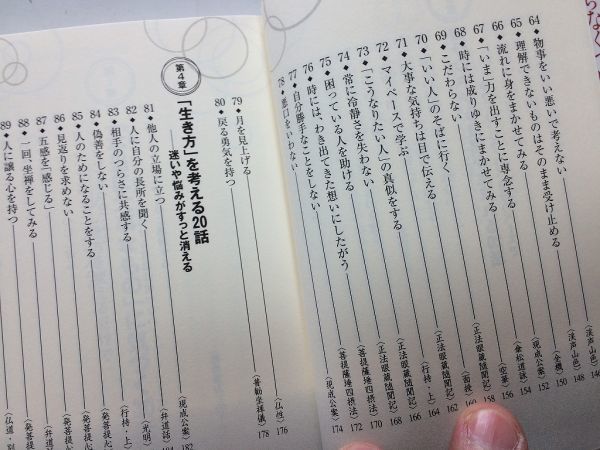 64 ◆ 物事をいい悪いで考えない（渓声山色）146
65 ◆ 理解できないものはそのまま受け止める（渓声山色）148
66 ◆ 流れに身をまかせてみる（全機）150
67 ◆ 「いま」力を出すことに専念する（現成公案）152
68 ◆ 時には成りゆきにまかせてみる（傘松道詠）154
69 ◆ こだわらない（空華）156
70 ◆ 「いい人」のそばに行く（正法眼蔵随聞記）158
71 ◆ 大事な気持ちは目で伝える（面授）160
72 ◆ マイペースで学ぶ 162
73 ◆ 「こうなりたい人」の真似をする（行持・上）164
74 ◆ 常に冷静さを失わない（正法眼蔵随聞記）166
75 ◆ 困っている人を助ける（正法眼蔵随聞記）168
76 ◆ 時には、わき出てきた想いにしたがう（菩提薩埵四摂法）170
77 ◆ 自分勝手なことをしない（菩提薩埵四摂法）172
78 ◆ 悪口をいわない（現成公案）174
79 ◆ 月を見上げる（仏性）176
80 ◆ 戻る勇気を持つ（普勧坐禅儀）178
第4章
「生き方」を考える20話
──迷いや悩みがすっと消える
81 ◆ 他人の立場に立つ（現成公案）182
82 ◆ 人に自分の長所を聞く（弁道話）184
83 ◆ 相手のつらさに共感する（光明）
84 ◆ 偽善をしない（行持・上）
85 ◆ 人のためになることをする（発菩提心
86 ◆ 見返りを求めない（発菩提心
87 ◆ 五感を「感じる」
88 ◆ 一回、坐禅をしてみる（弁道話
89 ◆ 人に譲る心を持つ（発菩提
（仏道・別